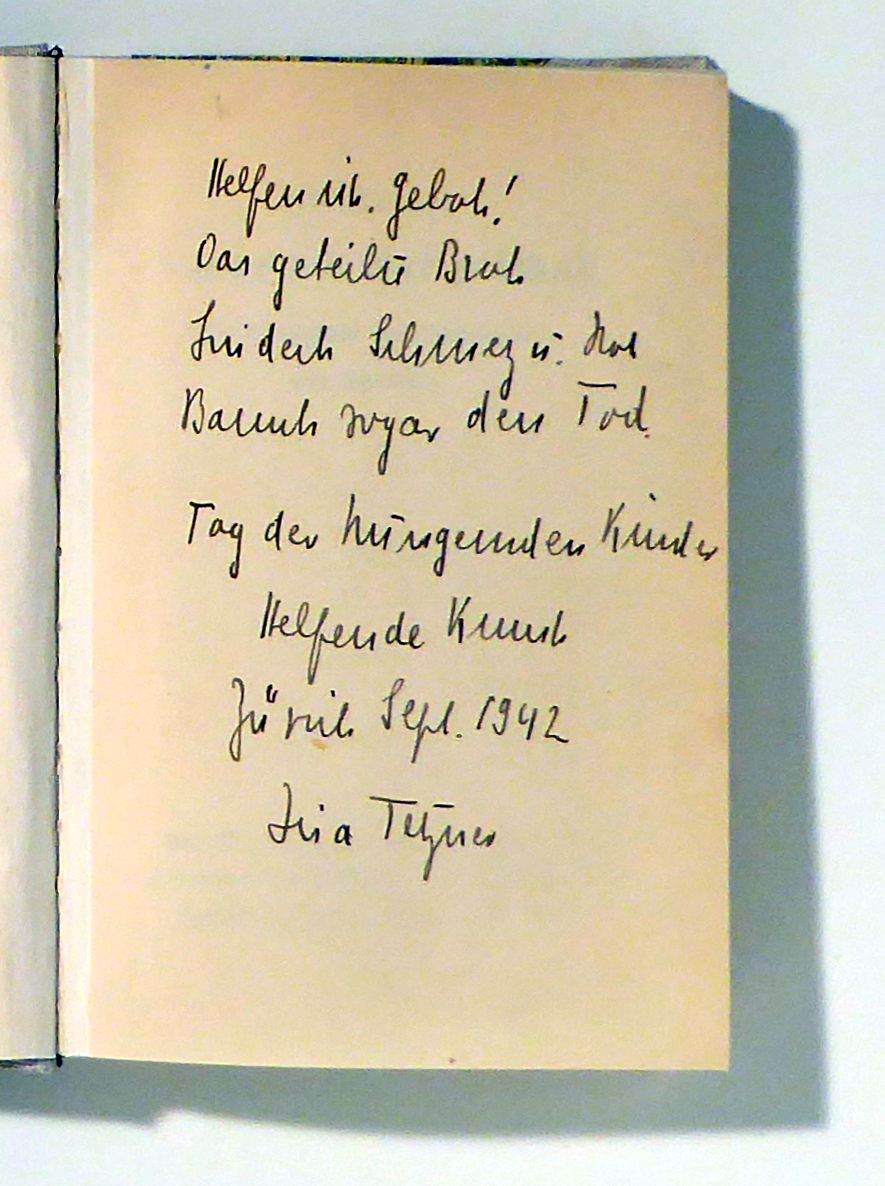 Helfen ist Gebot!
Das geteilte Brot
Lindert Schmerz u. Not
Bannt sogar den Tod.
Tag der hungernden Kinder
Helfende Kunst
Zürich Sept. 1942
Lisa Tetzner